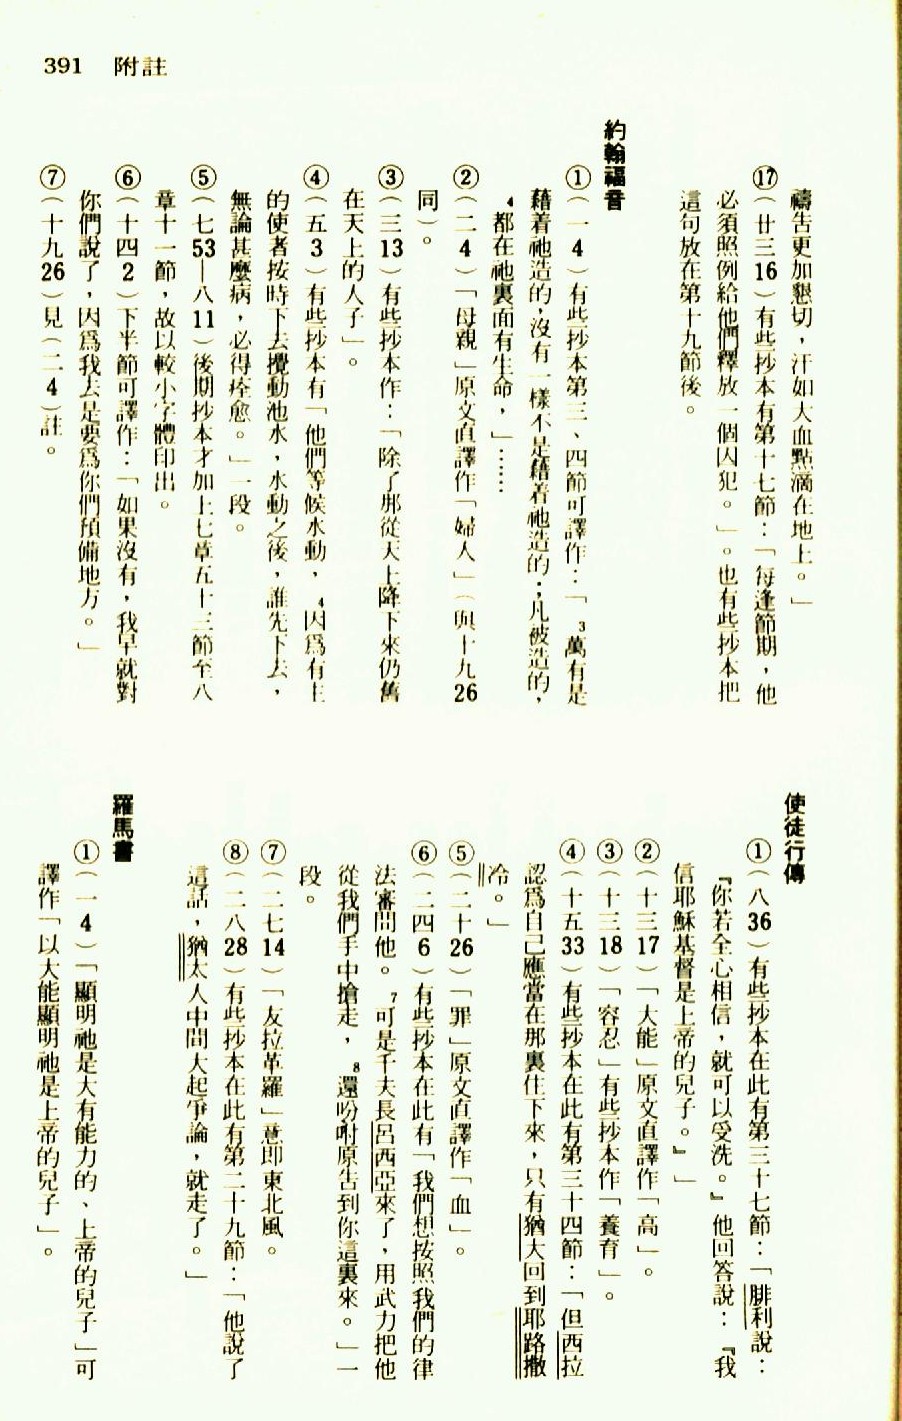 391 附註
禱告更加懇切，汗如大血點滴在地上。」
⑰（廿三16）有些抄本有第十七節：「每逢節期，他
必須照例給他們釋放一個囚犯。」。也有些抄本把
這句放在第十九節後。
約翰福音
①（一4）有些抄本第三、四節可譯作：「3萬有是
藉着祂造的，沒有一樣不是藉着祂造的；凡被造的，
4都在祂裏面有生命，」……
②（二4）「母親」原文直譯作「婦人」（與十九26
同）。
③（三13）有些抄本作：「除了那從天上降下來仍舊
在天上的人子」。
④（五3）有些抄本有「他們等候水動，4因爲有主
的使者按時下去攪動池水，水動之後，誰先下去，
無論甚麼病，必得痊愈。」一段。
⑤（七53—八11）後期抄本才加上七章五十三節至八
章十一節，故以較小字體印出。
⑥（十四2）下半節可譯作：「如果沒有，我早就對
你們說了，因爲我去是要爲你們預備地方。」
⑦（十九26）見（二4）註。
使徒行傳
①（八36）有些抄本在此有第三十七節：「腓利說：
『你若全心相信，就可以受洗。』他回答說：『我
信耶穌基督是上帝的兒子。』」
②（十三17）「大能」原文直譯作「高」。
③（十三18）「容忍」有些抄本作「養育」。
④（十五33）有些抄本在此有第三十四節：「但西拉
認爲自己應當在那裏住下來，只有猶大回到耶路撒
冷。」
⑤（二十26）「罪」原文直譯作「血」。
⑥（二四6）有些抄本在此有「我們想按照我們的律
法審問他。7可是千夫長呂西亞來了，用武力把他
從我們手中搶走，8還吩咐原告到你這裏來。」一
段。
⑦（二七14）「友拉革羅」意即東北風。
⑧（二八28）有些抄本在此有第二十九節：「他說了
這話，猶太人中間大起爭論，就走了。」
羅馬書
①（一4）「顯明祂是大有能力的、上帝的兒子」可
譯作「以大能顯明祂是上帝的兒子」。